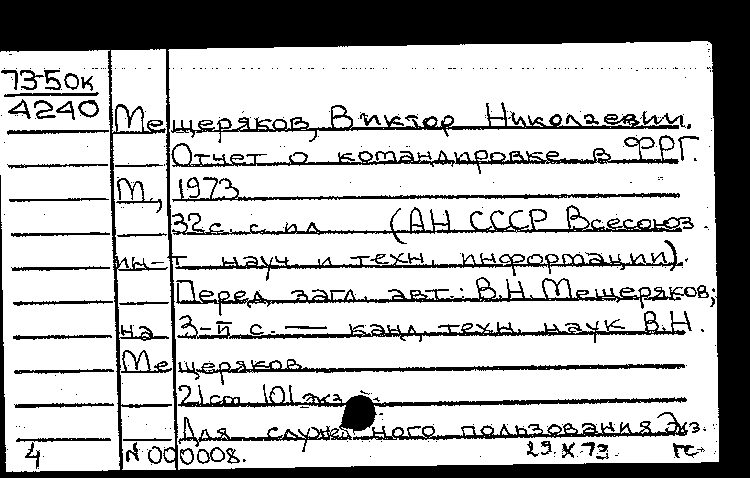 73-50к
4240
Мещеряков, Виктор Николаевич.
Отчет о командировке в ФРГ.
М., 1973
32 с. с ил (АН СССР Всесоюз.
ин-т науч. и техн. информации).
Перед загл. авт.: В.Н. Мещеряков;
на 3-й с. — канд. техн. наук В.Н.
Мещеряков
21 см 101 экз
Для служебного пользования. Экз.
4 № 000008. 29.X.73. ГС